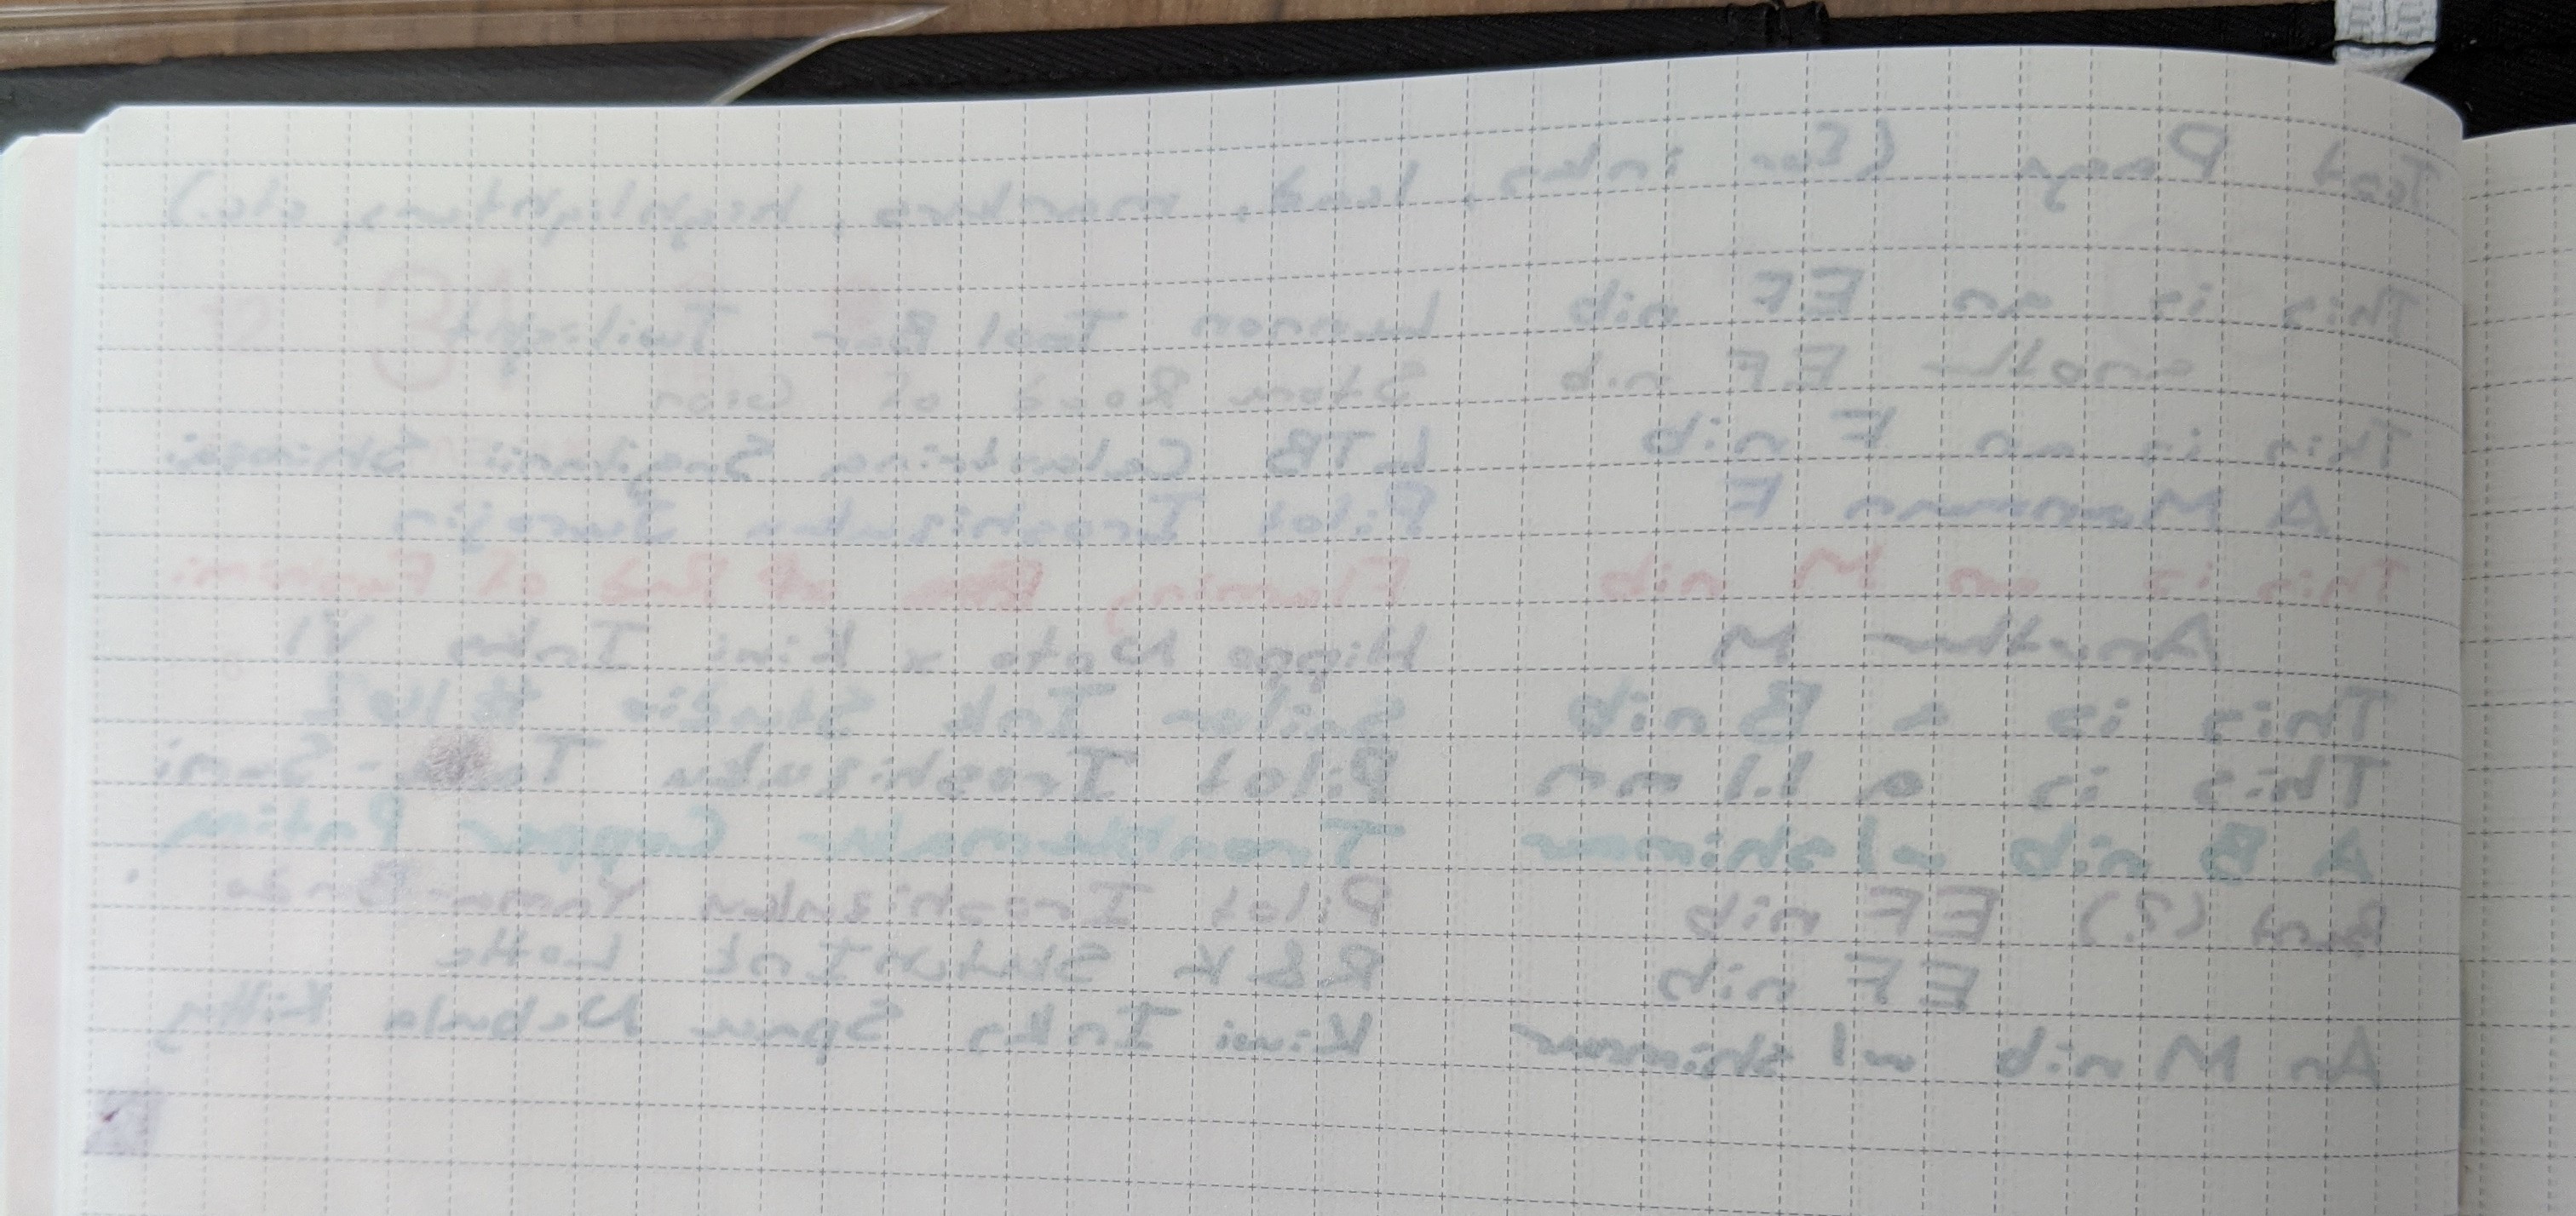 Test Page (for inks, lead, markers, highlighters, etc.)
This is an EF nib Lennon Tool Bar Twilight
another EF nib Stone Road of
This is an F nib LTB Celestrina Sasakii Shirozui
A Monoman F Pilot Iroshizuku Juro-jin
This is an M nib Flaming Red of Fushimi
Another M Hippo Noto x Kiwi Inks VI
This is a B nib Sailor Ink Studio # 162
This is a 1.1 mm Pilot Iroshizuku Take-Sumi
A B nib w/ shimmer Troublemaker Copper Patina
Bent (?) EF nib Pilot Iroshizuku Yama-Budo
EF nib R&K SketchINK Lotte
An M nib w/ shimmer Kiwi Inks Space Nebula Kitty